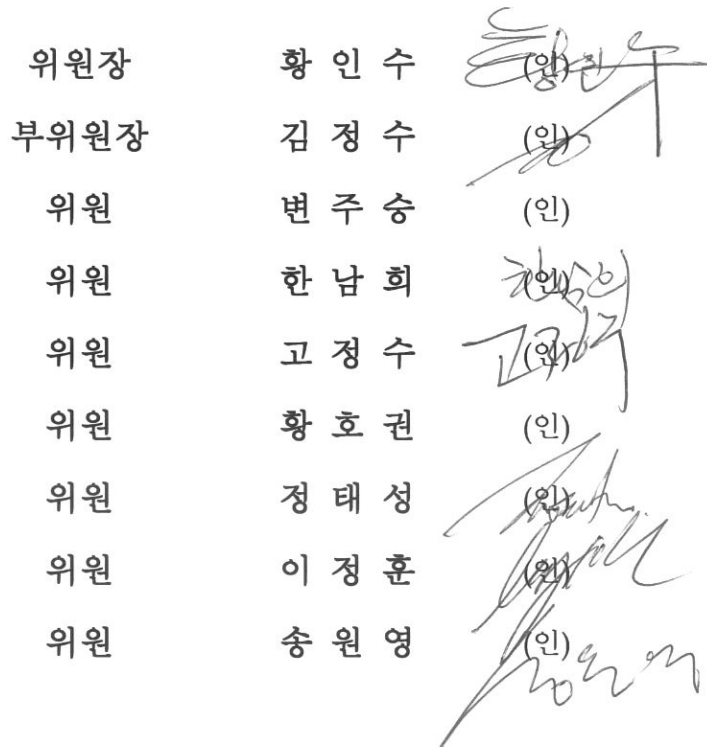 위원장 황 인 수 (인) 황인수
부위원장 김 정 수 (인)
위원 변 주 승 (인)
위원 한 남 희 (인)
위원 고 정 수 (인)
위원 황 호 권 (인)
위원 정 태 성 (인)
위원 이 정 훈 (인)
위원 송 원 영 (인)